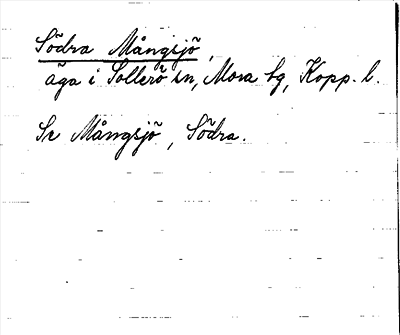 Södra Mångsjö,
äga i Sollerö sn, Mora tg, Kopp. l.
Se Mångsjö, Södra.